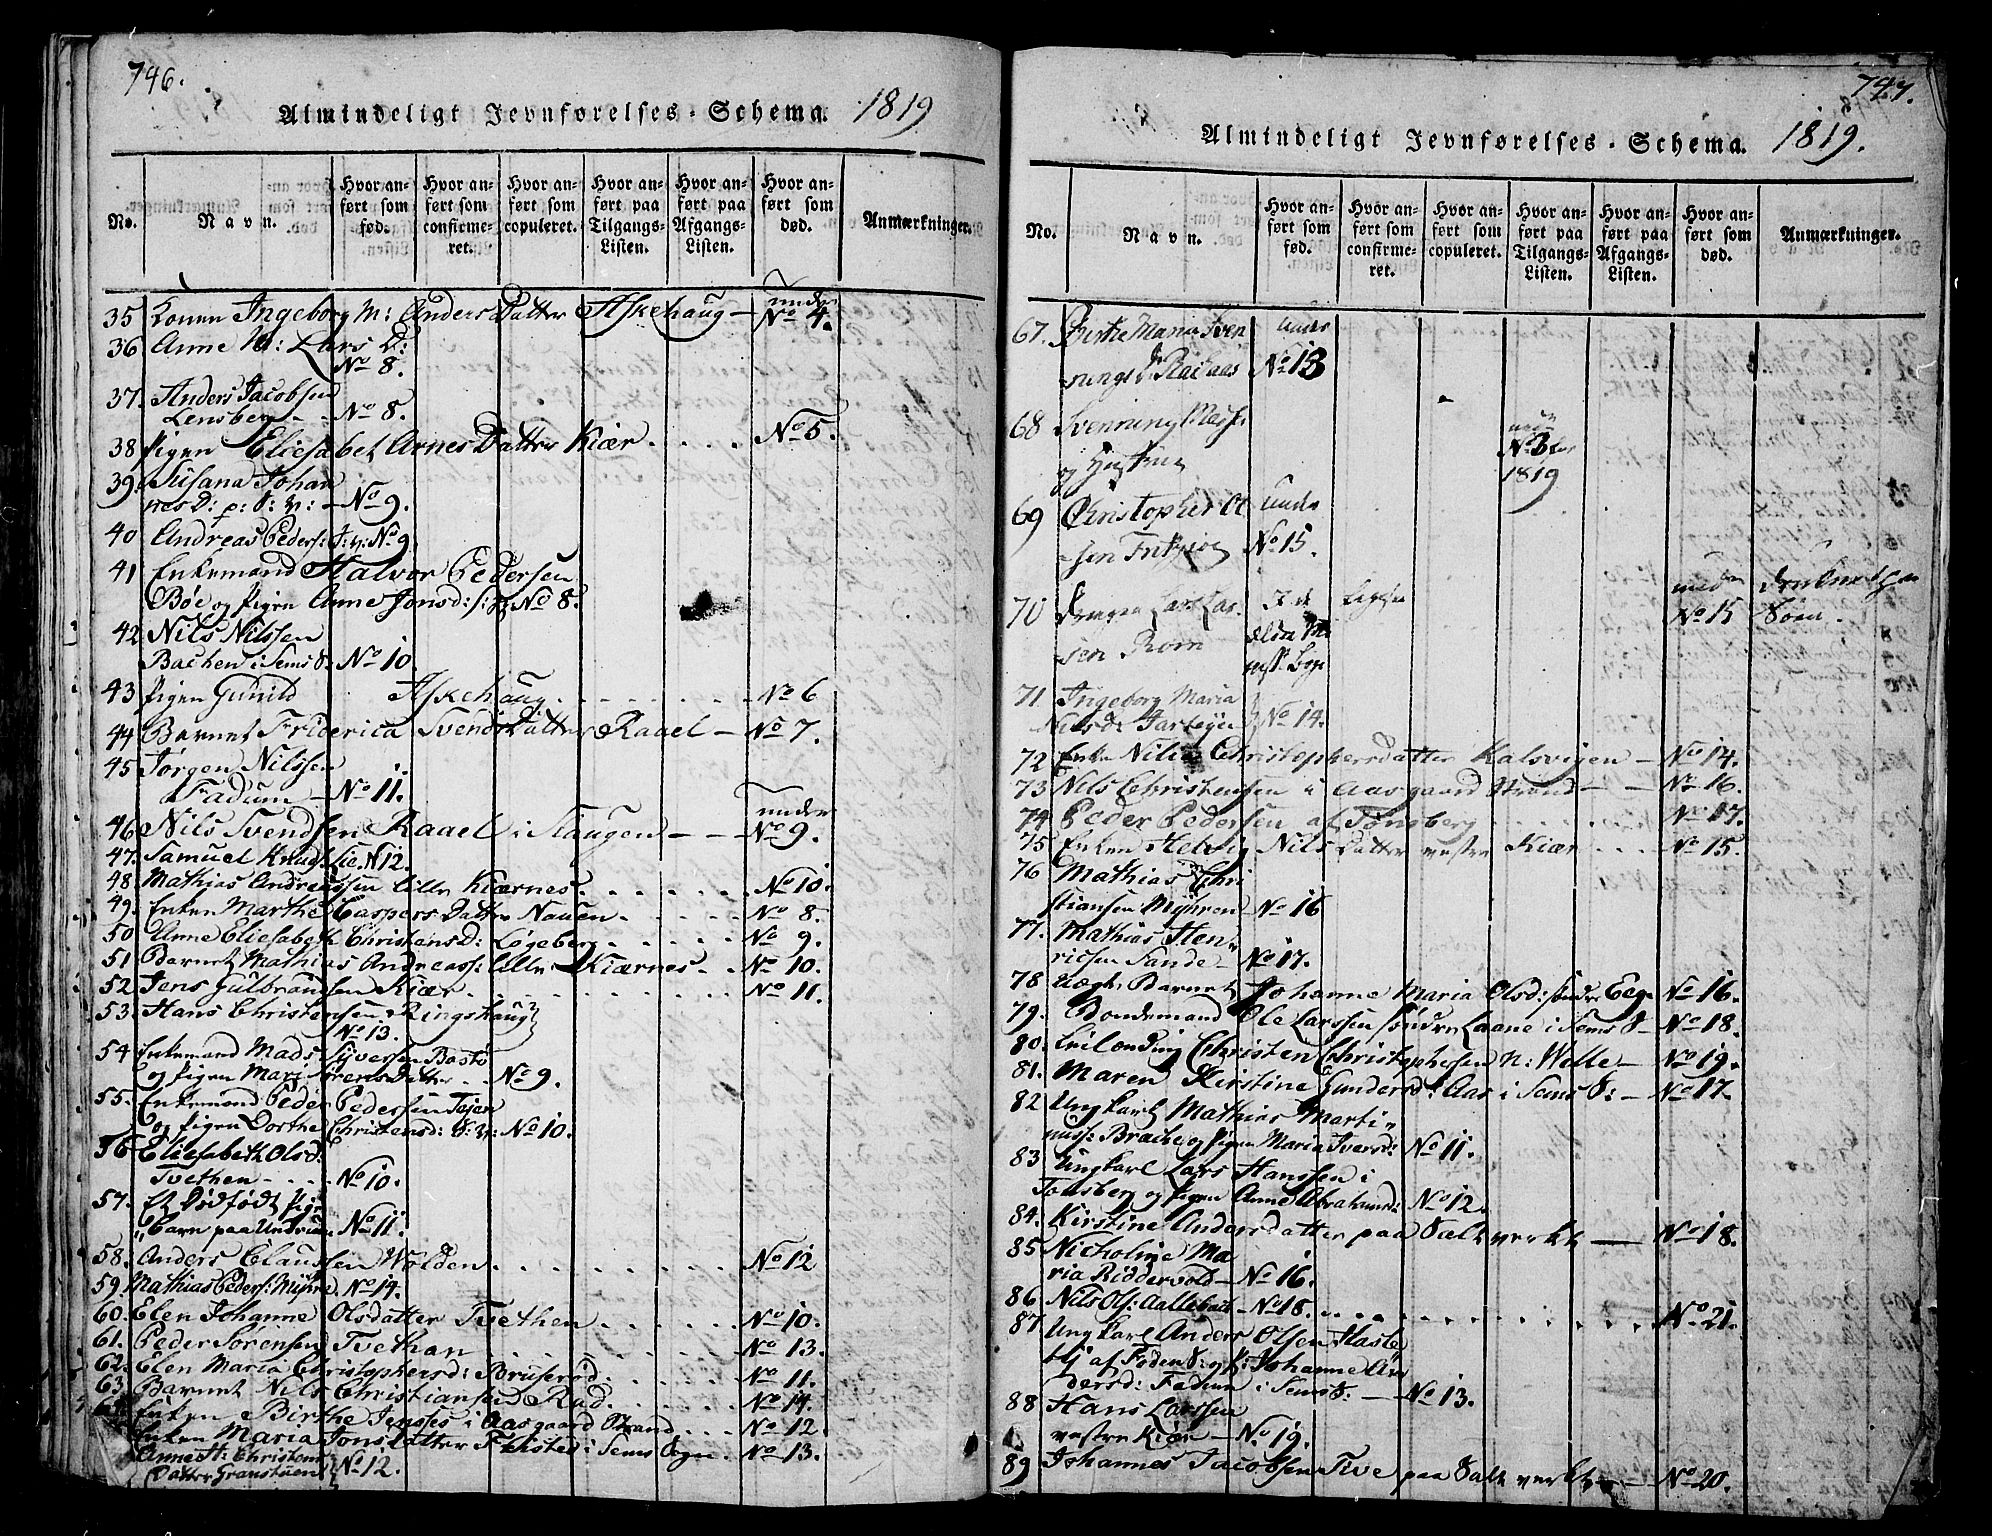 746.
Almindeligt Jevnførelses-Schema. 1819
No.
Navn.
Hvor an-
ført som
fød.
Hvor an-
ført som
confirme-
ret.
Hvor an-
ført som
copuleret.
Hvor an-
ført paa
Tilgangs-
Listen.
Hvor an-
ført paa
Afgangs-
Listen.
Hvor an-
ført som
død.
Anmærkninger.
35 Konen Ingeborg M: Anders Datter Askehaug — under No 4.
36 Anne M: Lars D:
No 8.
37. Anders Jacobsen
Lensberg - - No 8.
38 Pigen Eliesabet Arnes Datter Kiær . . . . No 5.
39. Susana Johan
nesD: p: S: v: — No 9.
40 Andreas Peders: S: v: No 9
41 Enkemand Halvor Pedersen
Bøe og Pigen Anne Jonsd: No 8.
42 Nils Nilssen
Bachen i Sems S. No 10.
43 Pigen Gunild Askehaug . . . . . No 6
44 Barnet Friderica Svends Datter Raael — No 7.
45 Jørgen Nilssen
Fadum — No 11.
46 Nils Svendsen Raael i Slaugen — — under No 9.
47. Samuel Knuds: Lie. N 12.
48. Mathias Andreassen lille Kiærnes . . . . . No 10.
49. Enken Marthe Caspers Datter Nauen . . . . . No 8.
50 Anne Eliesabeth Christensd: Løgeberg . . . . . No 9.
51 Barnet Mathias Andreass: lille Kiærnes . . No 10.
52 Jens Gulbrandsen Kiær . . . . . No 11.
53. Hans Christensen Ringshaug
No 13.
54 Enkemand Mads Syversen Bastø
og Pigen Mari Sørens Datter . . No 9.
55. Enkemand Peder Pedersen Tejen
og Pigen Dorthe Christensd: S: v: No 10.
56 Eliesabeth Olsd:
Tvethen - - - - No 10.
57. Et Dødfødt Pige
Barn paa Undrum. No 11.
58. Anders Claussen Wolden . . . . . No 12
59. Mathias Peders: Myhre. No 14.
60. Elen Johanne Olsdatter Tvethen . . . . . No 10.
61. Peder Sørensen Tvethan . . . . . No 13.
62. Elen Maria Christophersd: Bruserød . . . . No 11.
63. Barnet Nils Christiansen Rød . . . . . No 14.
Enken Birthe Jenses i Aasgaard Strand . . . No 12
Enken Maria Jons Datter i Sems Sogn . No 13.
Anne H: Christens
Datter Granstuen No 12.
747.
Almindeligt Jevnførelses-Schema. 1819.
No.
Navn.
Hvor an-
ført som
fød.
Hvor an-
ført som
confirme-
ret.
Hvor an-
ført som
copuleret.
Hvor an-
ført paa
Tilgangs-
Listen.
Hvor an-
ført paa
Afgangs-
Listen.
Hvor an-
ført som
død.
Anmærkninger.
67. Birthe Maria Sven under
nings D. No 13
68 Svenning
og Hustrue No 3
1819
69 Christopher Ol under
sen No 15.
70 Drengen Lars Lar-
sen Rom No 15 Søen.
71 Ingeborg Maria
Nilsd: No 14.
72 Enke Nilia Christophersdatter Kalsvigen — No 14.
73 Nils Christensen i Aasgaard Strand — — No 16.
74 Peder Pedersen af Tønsberg . . . . . No 17.
75 Enken Helvig Nils Datter vestre Kiær . . . No 15.
76 Mathias Chri
stiansen Myhren — No 16
77. Mathias Hen-
richsen Sande — No 17.
78 Uægte Barnet Johanne Maria Olsd: søndre Eeg. No 16.
79. Bondemand Ole Larssen søndre Laane i Sems S — No 18.
80. Christen Christophersen n: Welle — No 19.
81. Maren Kirstine Gundersd: Aas i Sems S: — No 17.
82 Ungkarl Mathias Marti-
nuss: Brache og Pigen Maria Iversd: No 11.
83 Ungkarl Lars Hanssen i
Tønsberg og Pigen Anne Abrahamsd: No 12.
84. Kirstine Andersdatter paa Saltverket — No 18.
85 Nicholine Ma-
ria Riddervold — No 16.
86 Nils Ols: Aallebach — No 18. . . . . . No 21.
87. Ungkarl Anders Olsen Hasle
bye af Foden S: og P: Johanne An
dersd: Fadum i Sems S. — No 13.
88 Hans Larssen
vestre Kiær — No 19.
89 Johannes Jacobsen Tive paa Saltverket — No 20.